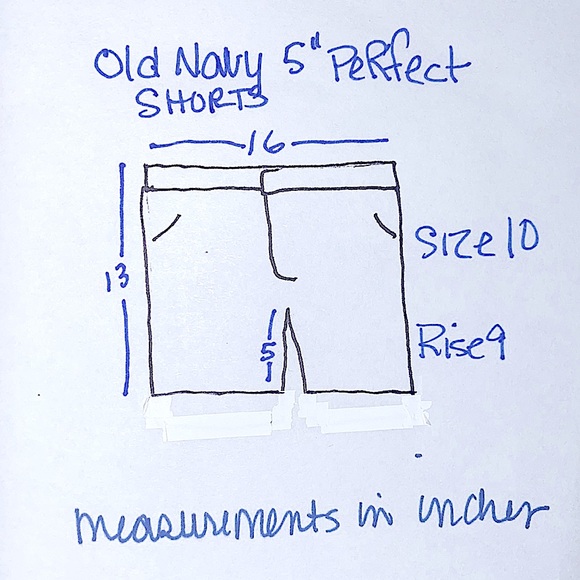 Old Navy 5" Perfect
SHORTS
16
13
Size 10
5
Rise 9
measurements in inches